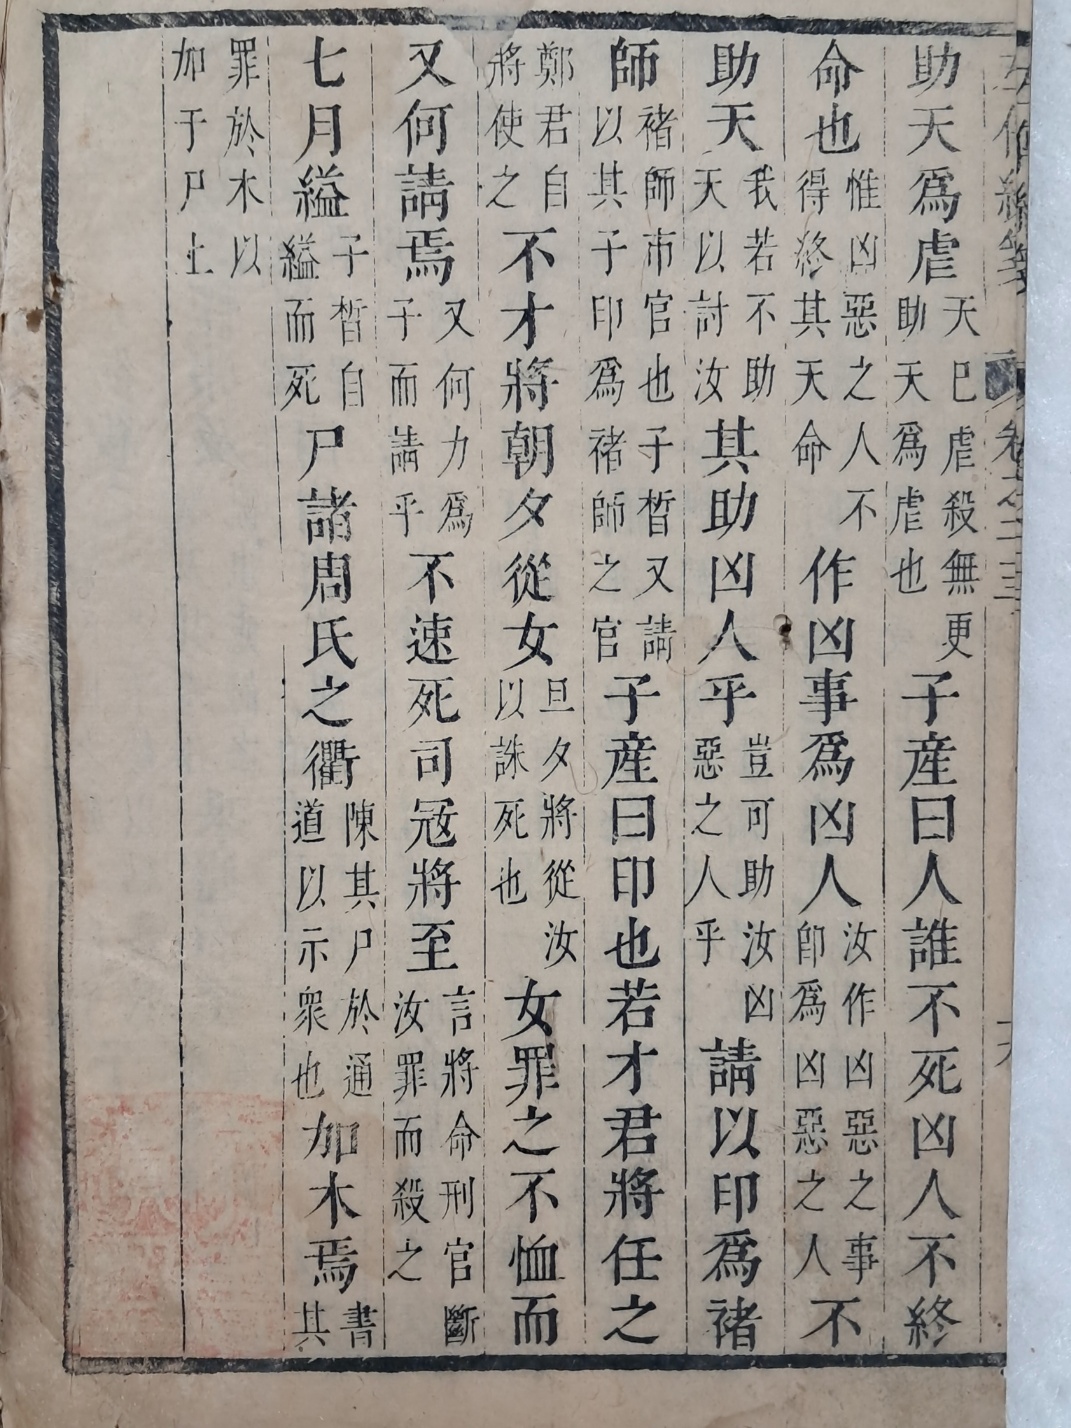 助天為虐天巳虐殺無更助天為虐也子産曰人誰不死凶人不終
命也惟凶惡之人不得終其天命作凶事為凶人汝作凶惡之事即為凶惡之人不
助天我若不助天以討汝其助凶人乎豈可助汝凶惡之人乎請以印為褚
師褚師市官也子晳又請以其子印為褚師之官子産曰印也若才君將任之
鄭君自將使之不才將朝夕從女旦夕將從汝以誅死也女罪之不恤而
又何請焉又何力為子而請乎不速死司冦將至言將命刑官斷汝罪而殺之
七月縊子晳自縊而死尸諸周氏之衢陳其尸於通道以示衆也加木焉書其
罪於木以加于尸上